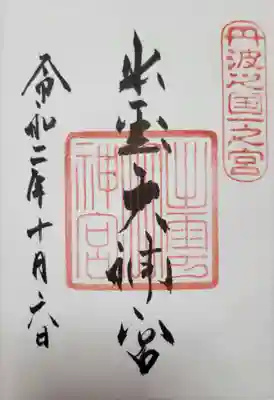 丹波之国一之宮
出雲大神宮
出雲大神宮
令和二年十月六日